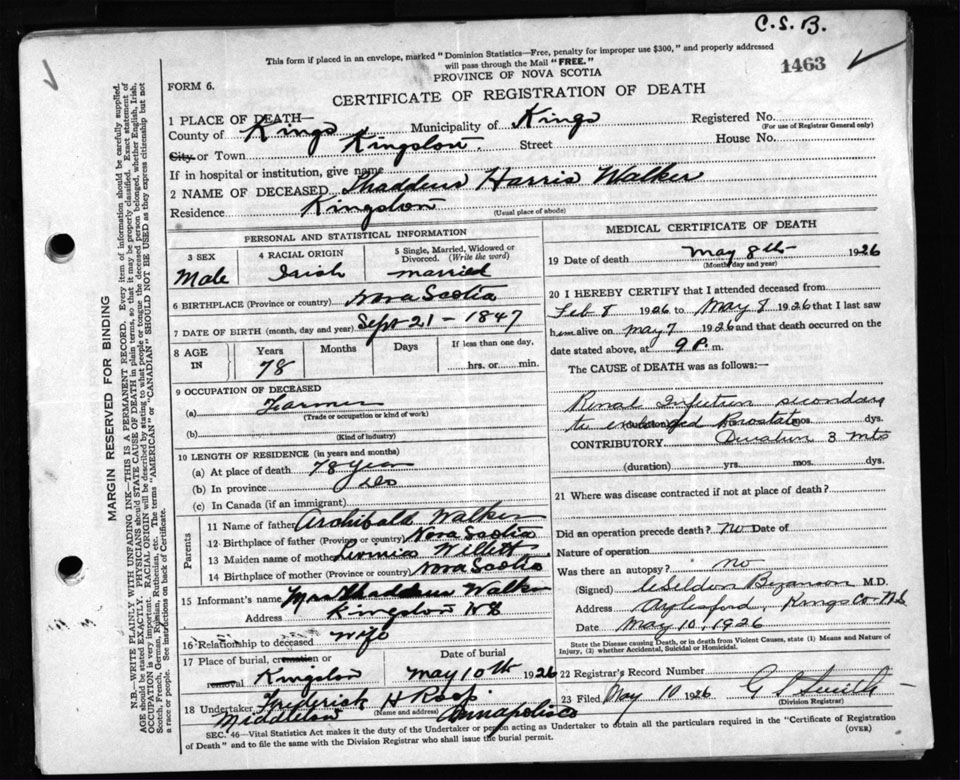 C. S. B.
This form if placed in an envelope, marked "Dominion Statistics—Free, penalty for improper use $300," and properly addressed
will pass through the Mail "FREE."
1463
PROVINCE OF NOVA SCOTIA
FORM 6.
CERTIFICATE OF REGISTRATION OF DEATH
1 PLACE OF DEATH—
County of Kings Municipality of Kings Registered No.
(For use of Registrar General only)
City or Town Kingston. Street House No.
If in hospital or institution, give name
2 NAME OF DECEASED Thaddeus Harris Walker
Residence Kingston (Usual place of abode)
PERSONAL AND STATISTICAL INFORMATION
3 SEX Male
4 RACIAL ORIGIN Irish
5 Single, Married, Widowed or Divorced. (Write the word) married
6 BIRTHPLACE (Province or country) Nova Scotia
7 DATE OF BIRTH (month, day and year) Sept 21 – 1847
8 AGE IN Years 78 Months Days If less than one day, hrs. or min.
9 OCCUPATION OF DECEASED
(a) Farmer
(Trade or occupation or kind of work)
(b)
(Kind of industry)
10 LENGTH OF RESIDENCE (in years and months)
(a) At place of death 78 years
(b) In province do
(c) In Canada (if an immigrant)
Parents
11 Name of father Archibald Walker
12 Birthplace of father (Province or country) Nova Scotia
13 Maiden name of mother
14 Birthplace of mother (Province or country) Nova Scotia
15 Informant's name Mrs Thaddeus Walker
Address Kingston NS
16 Relationship to deceased Wife
17 Place of burial, cremation or removal Kingston
Date of burial May 10th 1926
18 Undertaker Frederick H Roop
Middleton (Name and address) Annapolis Co
MEDICAL CERTIFICATE OF DEATH
19 Date of death May 8th 1926
(Month day and year)
20 I HEREBY CERTIFY that I attended deceased from
Feb 8 1926 to May 8 1926 that I last saw
him alive on May 7 1926 and that death occurred on the
date stated above, at 9 P. m.
The CAUSE of DEATH was as follows:—
Renal Infection secondary
to enlarged Prostate mos. dys.
CONTRIBUTORY Duration 3 mts
(duration) yrs. mos. dys.
21 Where was disease contracted if not at place of death?
Did an operation precede death? no Date of
Nature of operation
Was there an autopsy? no
(Signed) M.D.
Address Aylesford, Kings Co N.S.
Date May 10, 1926
State the Disease causing Death, or in death from Violent Causes, state (1) Means and Nature of
Injury, (2) whether Accidental, Suicidal or Homicidal.
22 Registrar's Record Number
23 Filed May 10 1926 G S Smith
(Division Registrar)
SEC. 46—Vital Statistics Act makes it the duty of the Undertaker or person acting as Undertaker to obtain all the particulars required in the "Certificate of Registration
of Death" and to file the same with the Division Registrar who shall issue the burial permit.
(OVER)
MARGIN RESERVED FOR BINDING
N.B.—WRITE PLAINLY WITH UNFADING INK—THIS IS A PERMANENT RECORD. Every item of information should be carefully supplied.
AGE should be stated EXACTLY. PHYSICIANS should STATE CAUSE OF DEATH in plain terms, so that it may be properly classified. Exact statement of
OCCUPATION is very important. RACIAL ORIGIN will be described by stating to what people or tongue the deceased person belonged, whether English, Irish,
Scotch, French, German, Russian, Ruthenian, etc. The terms "AMERICAN" or "CANADIAN" SHOULD NOT BE USED as they express citizenship but not
a race or people. See instructions on back of Certificate.